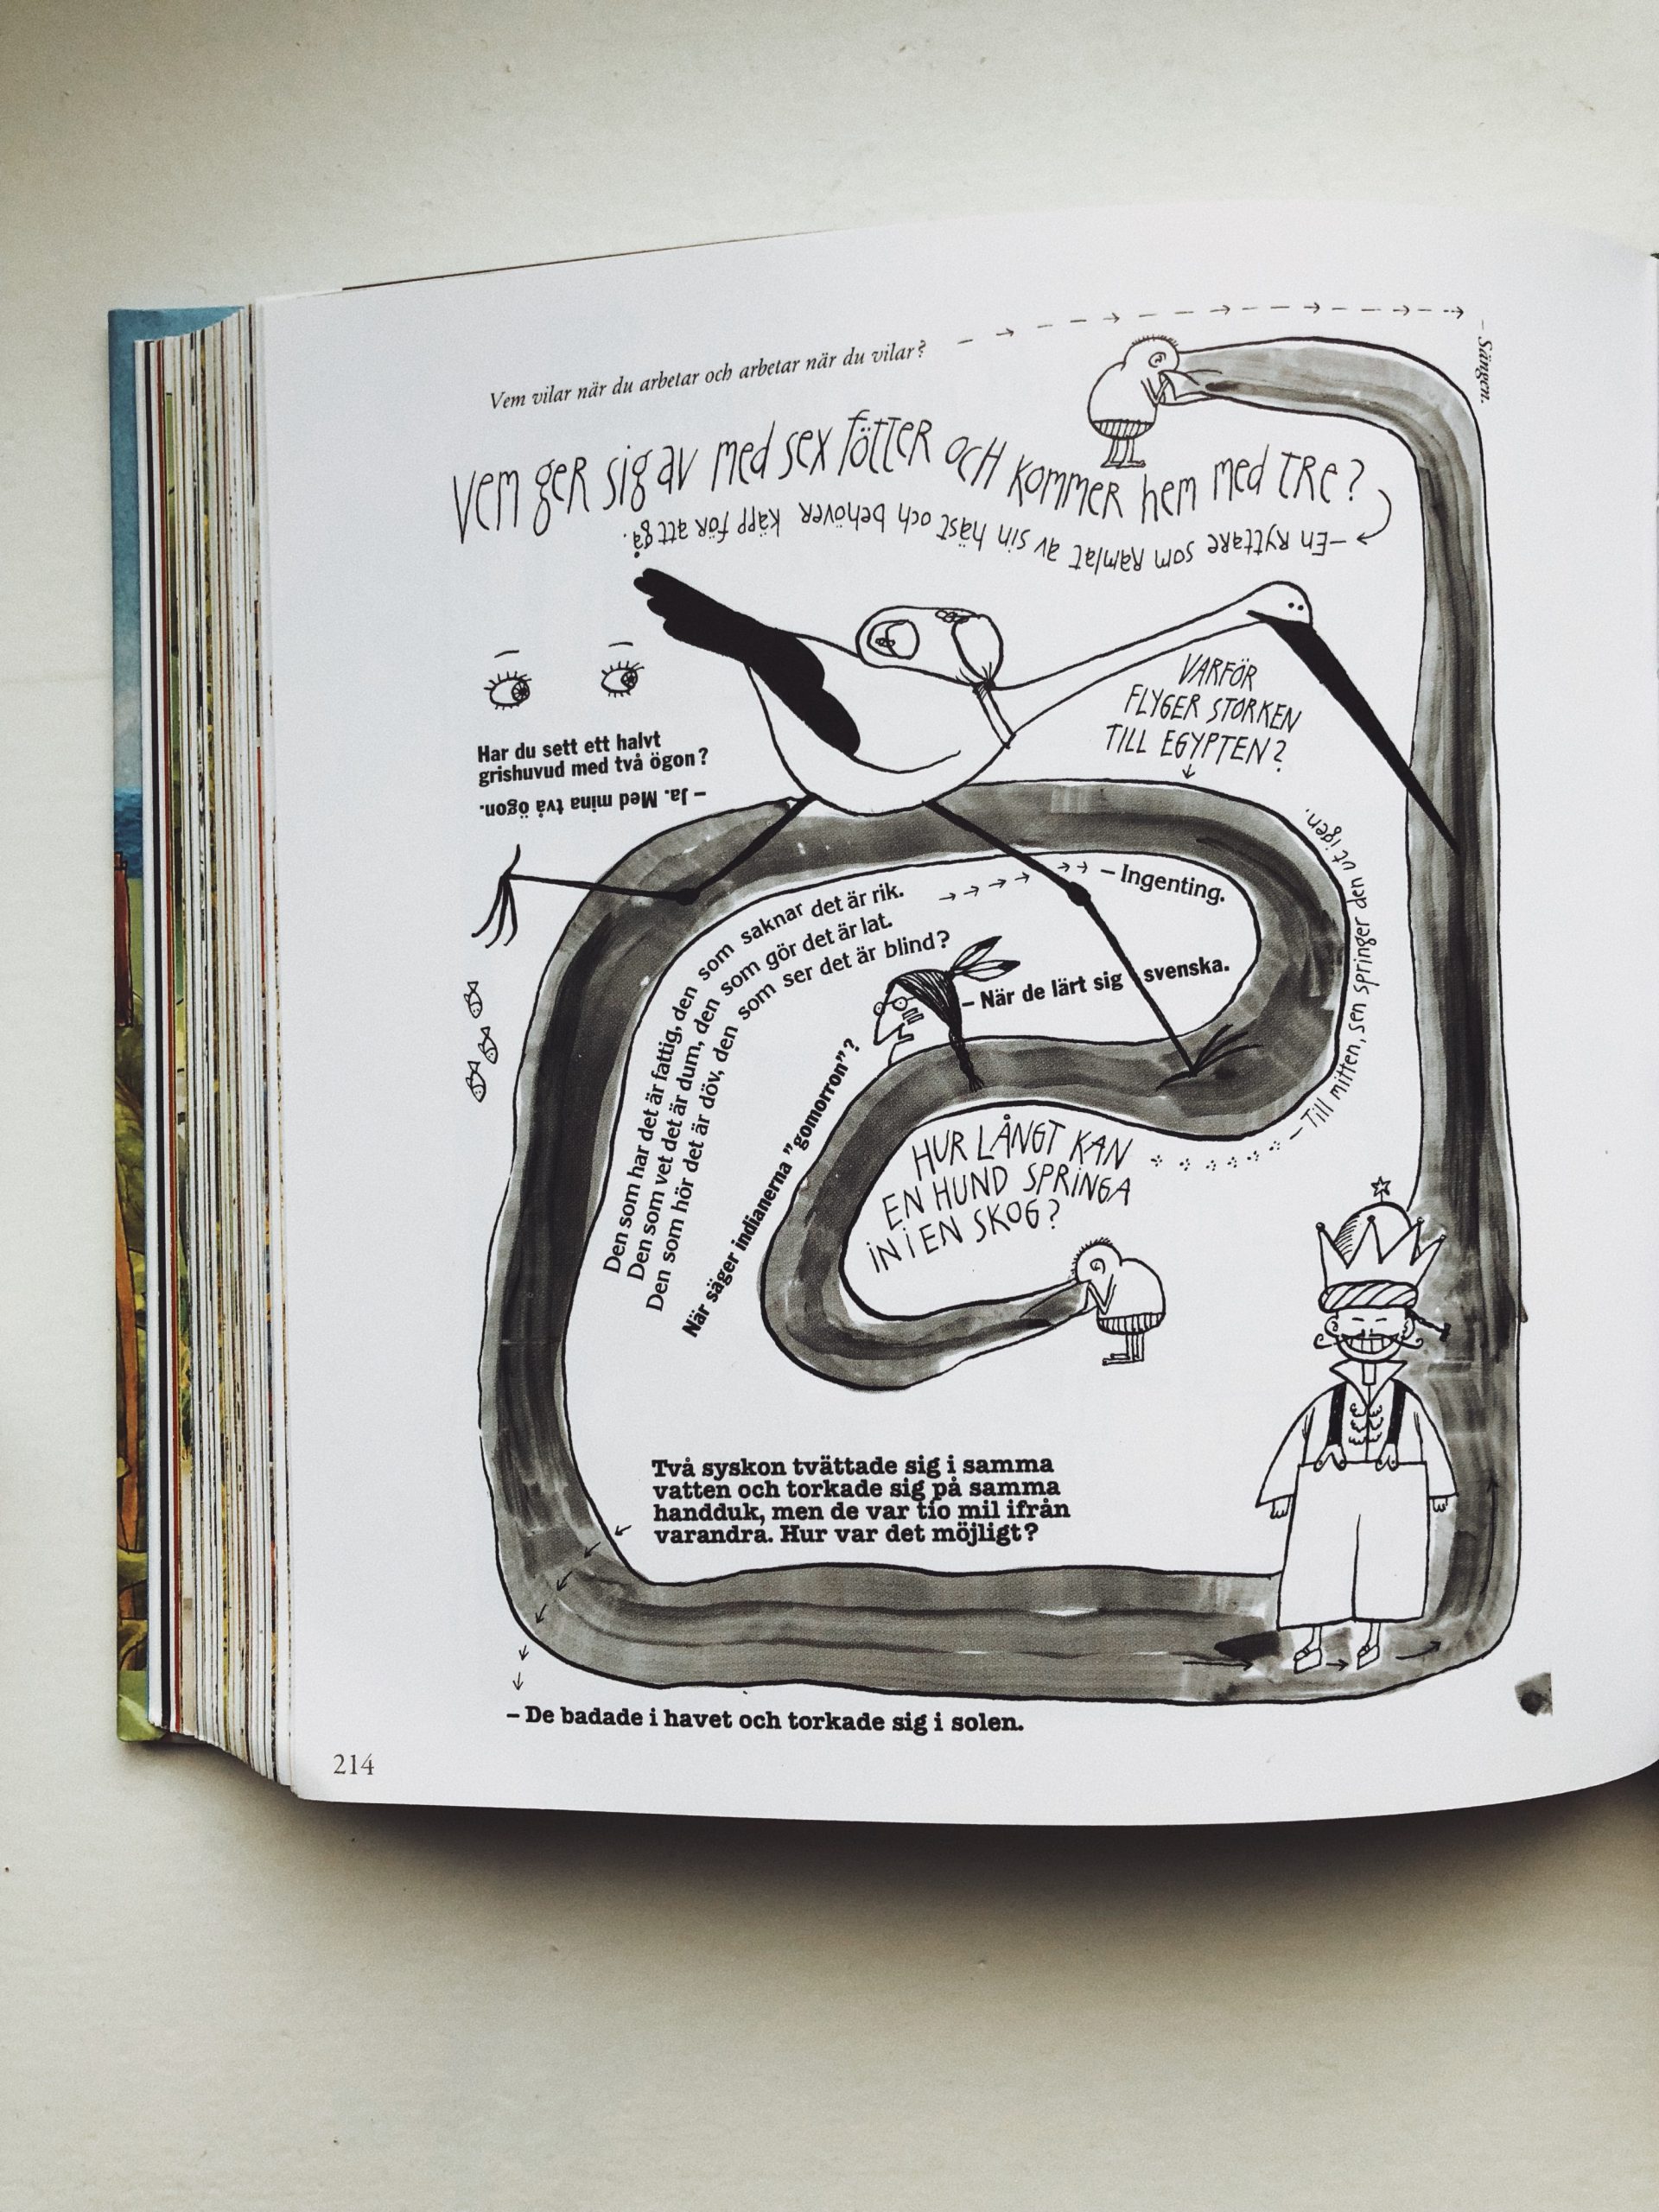 Vem vilar när du arbetar och arbetar när du vilar?
– Sängen.
Vem ger sig av med sex fötter och kommer hem med tre?
– En ryttare som ramlat av sin häst och behöver käpp för att gå.
Har du sett ett halvt
grishuvud med två ögon?
– Ja. Med mina två ögon.
VARFÖR
FLYGER STORKEN
TILL EGYPTEN?
Den som har det är fattig, den som saknar det är rik.
Den som vet det är dum, den som gör det är lat.
Den som hör det är döv, den som ser det är blind?
– Ingenting.
När säger indianerna "gomorron"?
– När de lärt sig svenska.
HUR LÅNGT KAN
EN HUND SPRINGA
IN I EN SKOG?
– Till mitten, sen springer den ut igen.
Två syskon tvättade sig i samma
vatten och torkade sig på samma
handduk, men de var tio mil ifrån
varandra. Hur var det möjligt?
– De badade i havet och torkade sig i solen.
214